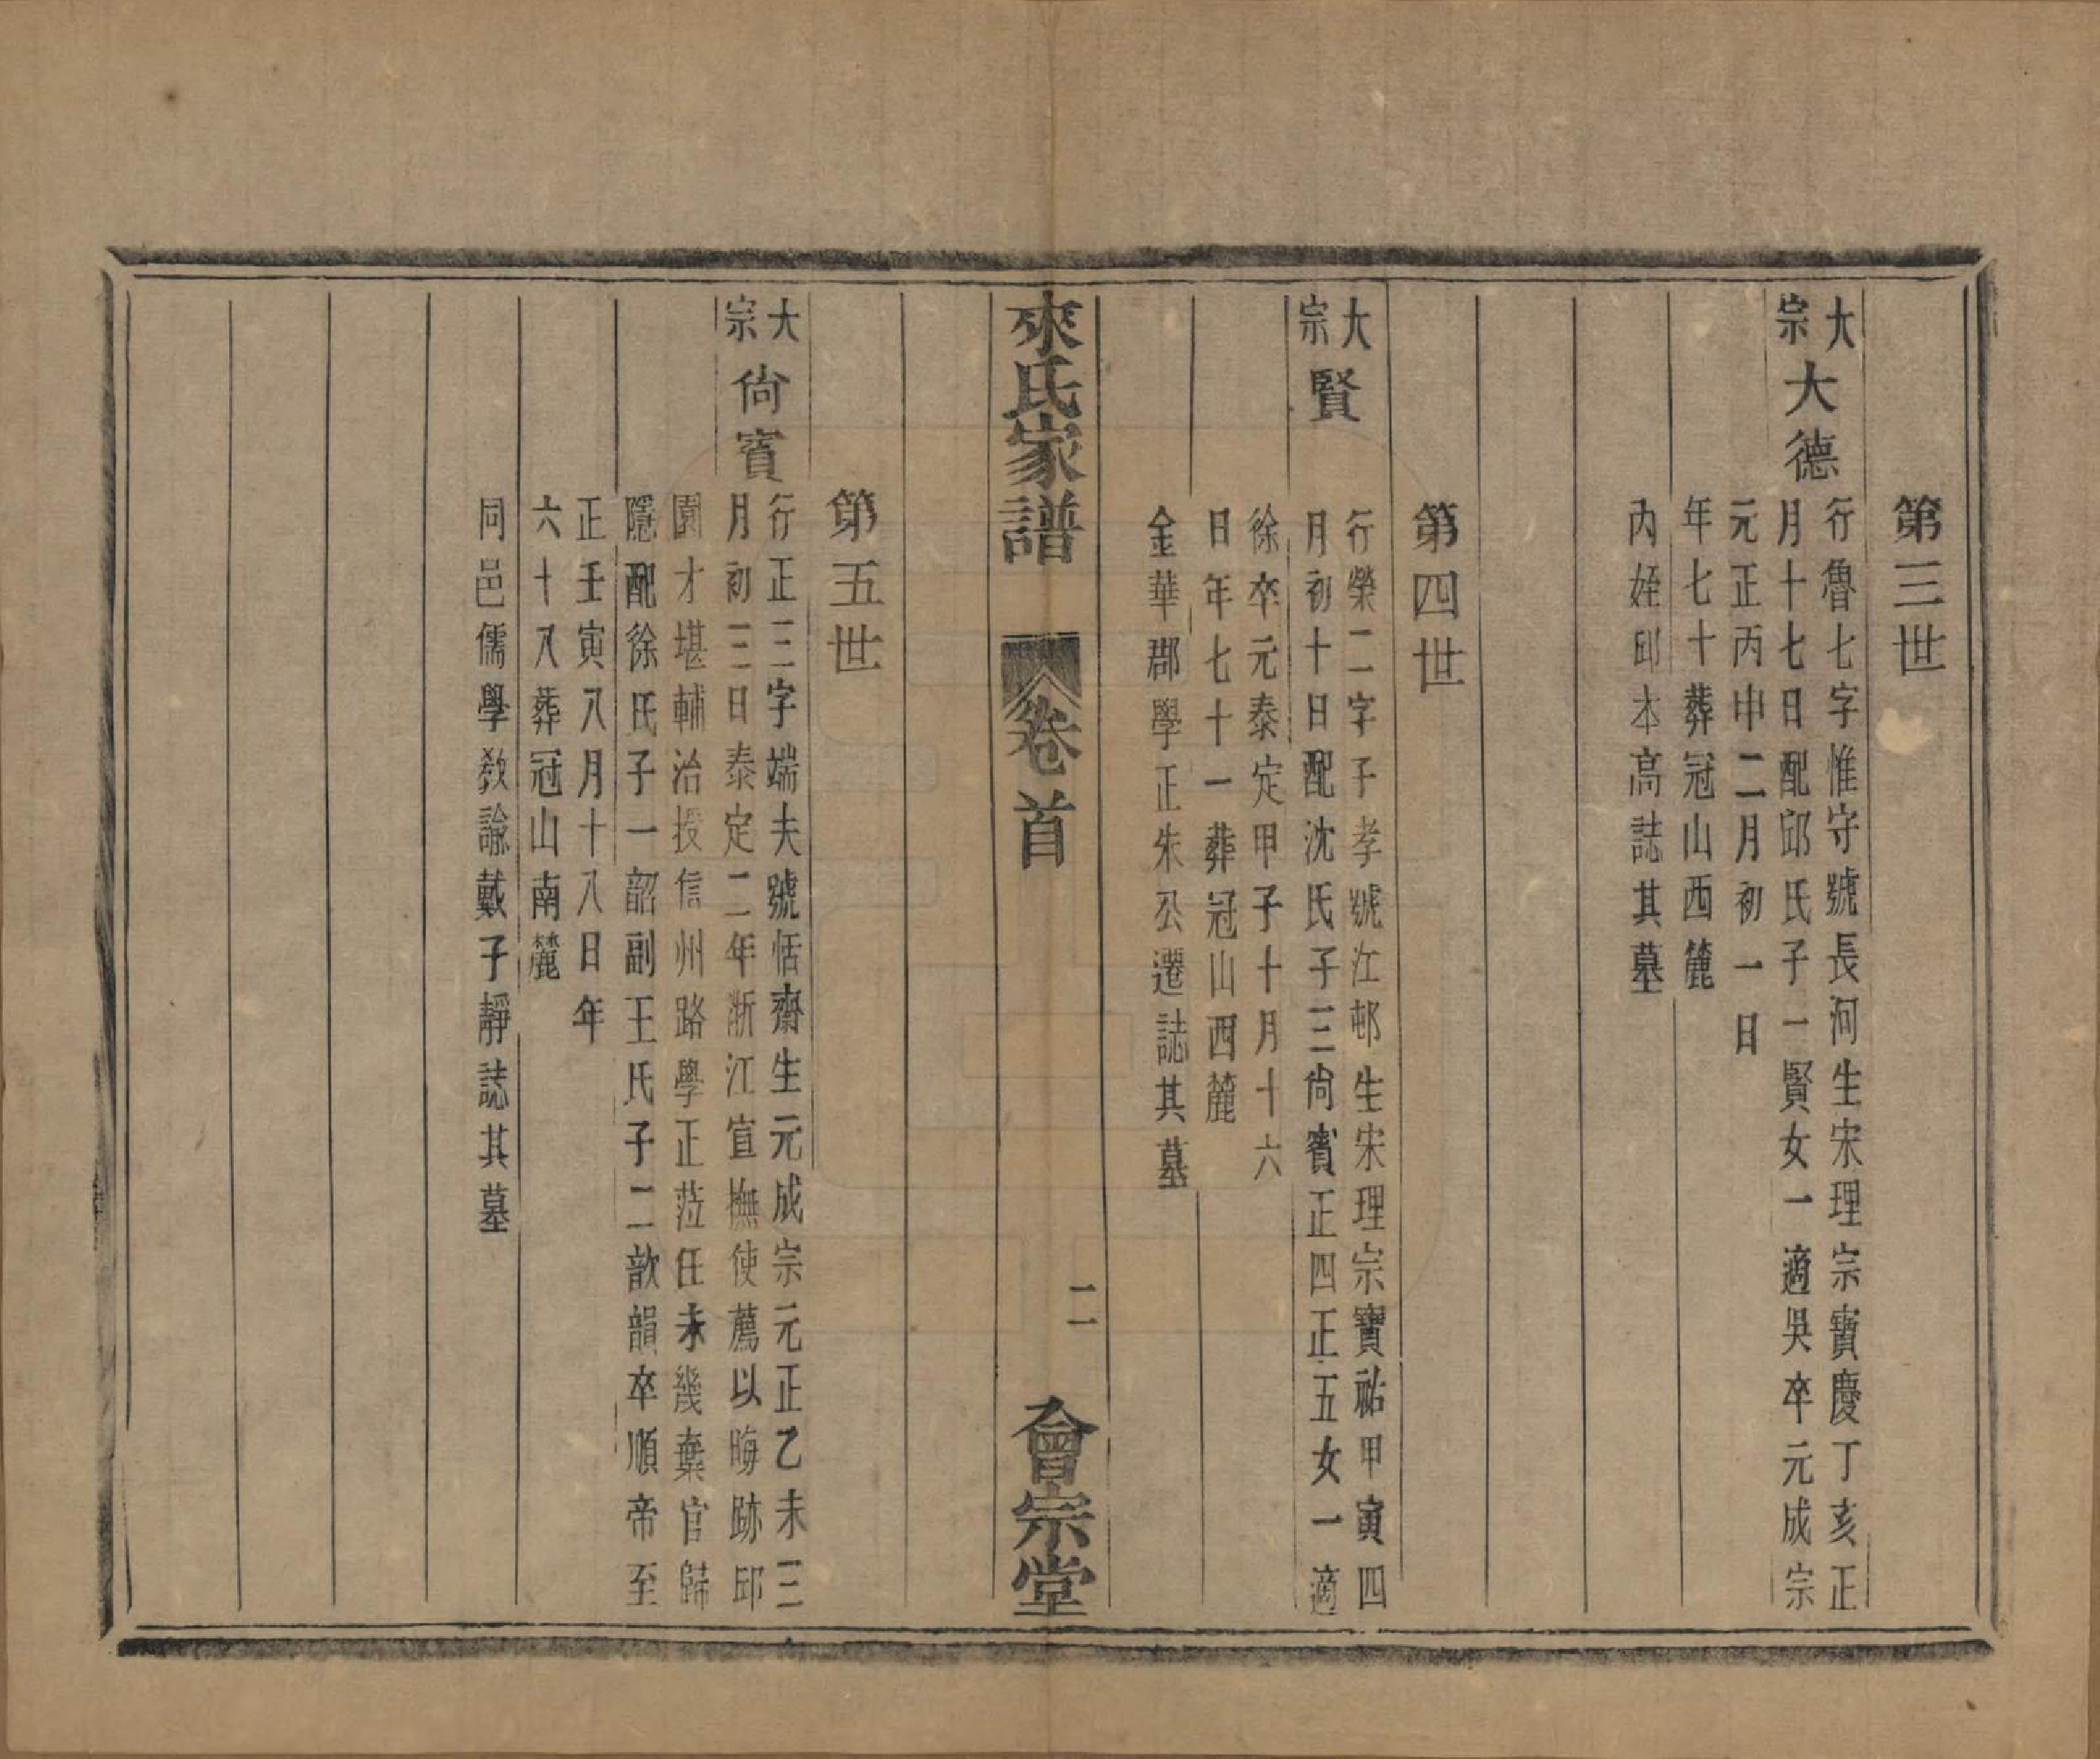 第三世
大宗 大德
行魯七字惟守號長河生宋理宗寶慶丁亥正
月十七日配邱氏子一賢女一適吳卒元成宗
元正丙申二月初一日
年七十葬冠山西麓
內姪邱本高誌其墓
第四世
大宗 賢
行榮二字子孝號江邨生宋理宗寶祐甲寅四
月初十日配沈氏子三尙賓正四正五女一適
徐卒元泰定甲子十月十六
日年七十一葬冠山西麓
金華郡學正朱公遷誌其墓
來氏家譜 卷首 二 會宗堂
第五世
大宗 尙賓
行正三字端夫號恬齋生元成宗元正乙未三
月初三日泰定二年浙江宣撫使薦以晦跡邱
園才堪輔治授信州路學正蒞任未幾棄官歸
隱配徐氏子一韶副王氏子二歆韻卒順帝至
正壬寅八月十八日年
六十八葬冠山南麓
同邑儒學教諭戴子靜誌其墓